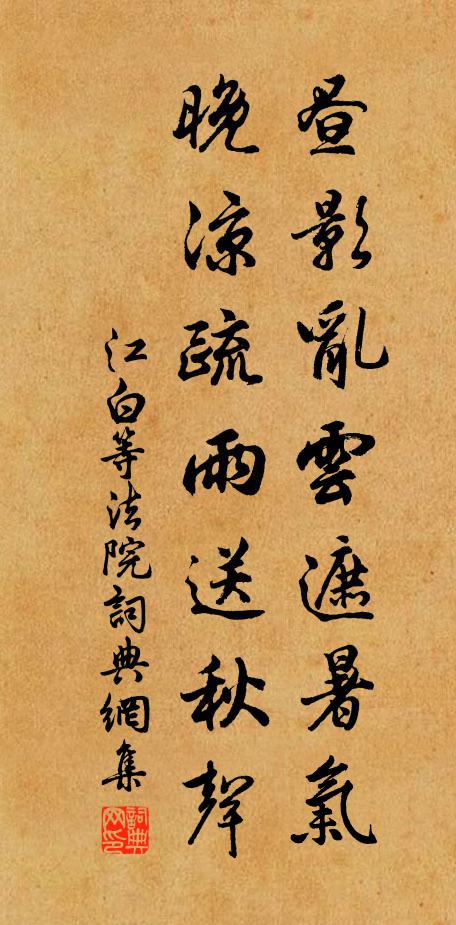 昼影亂雲遮暑氣
晚涼疏雨送秋聲
江白等法院詞典網集
詞典网印